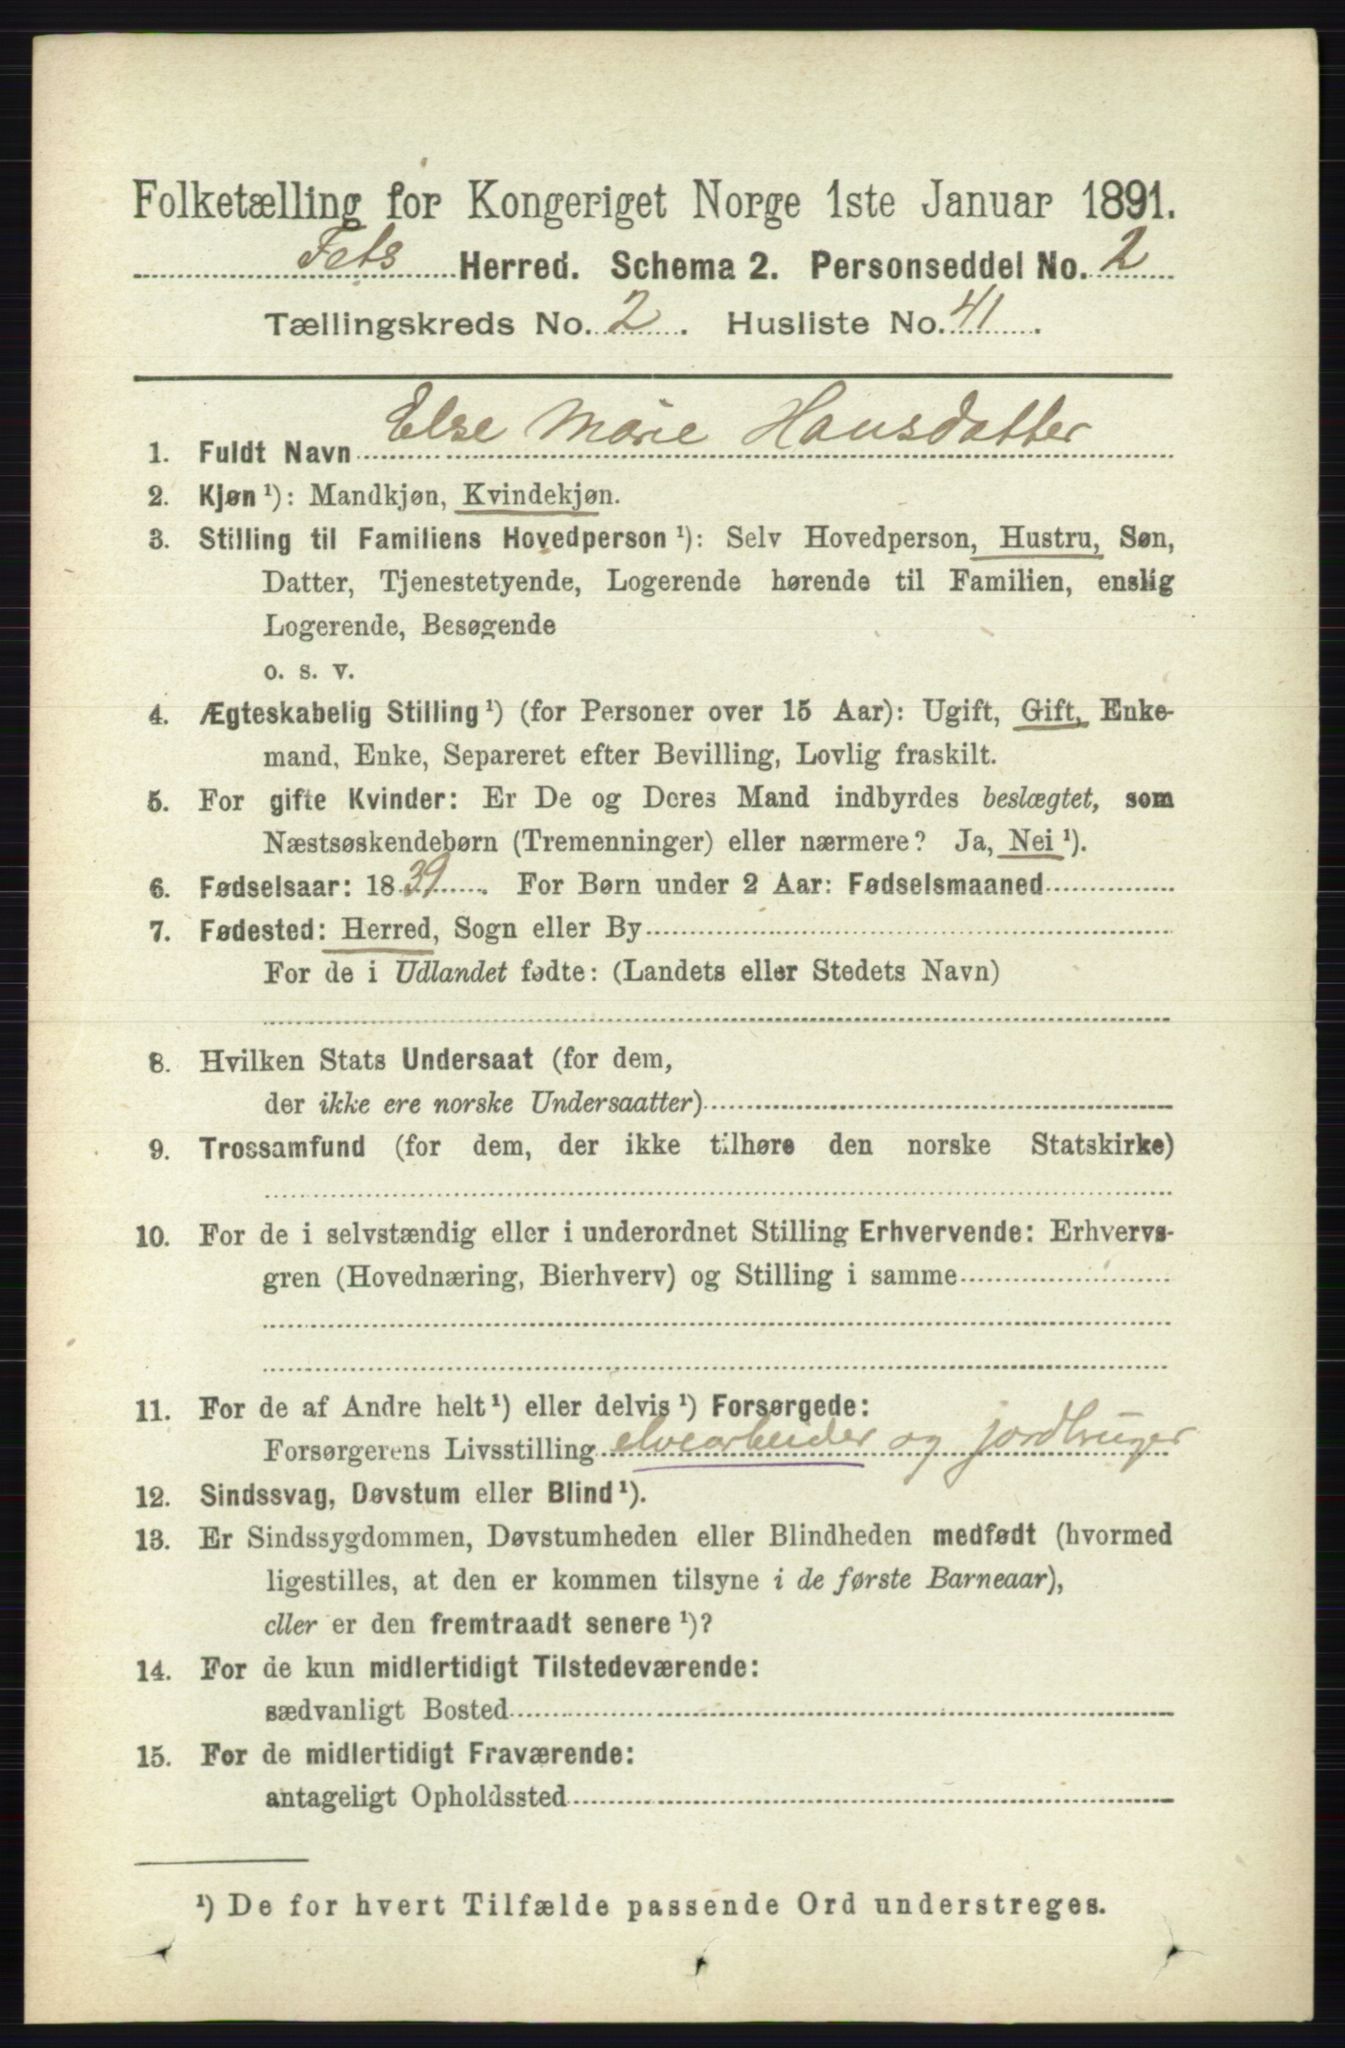 Folketælling for Kongeriget Norge 1ste Januar 1891.
Fets Herred. Schema 2. Personseddel No. 2
Tællingskreds No. 2. Husliste No. 41.
1. Fuldt Navn Else Marie Hansdatter
2. Kjøn ¹): Mandkjøn, Kvindekjøn.
3. Stilling til Familiens Hovedperson ¹): Selv Hovedperson, Hustru, Søn,
Datter, Tjenestetyende, Logerende hørende til Familien, enslig
Logerende, Besøgende
o. s. v.
4. Ægteskabelig Stilling ¹) (for Personer over 15 Aar): Ugift, Gift, Enke-
mand, Enke, Separeret efter Bevilling, Lovlig fraskilt.
5. For gifte Kvinder: Er De og Deres Mand indbyrdes beslægtet, som
Næstsøskendebørn (Tremenninger) eller nærmere? Ja, Nei ¹).
6. Fødselsaar: 1839. For Børn under 2 Aar: Fødselsmaaned
7. Fødested: Herred, Sogn eller By
For de i Udlandet fødte: (Landets eller Stedets Navn)
8. Hvilken Stats Undersaat (for dem,
der ikke ere norske Undersaatter)
9. Trossamfund (for dem, der ikke tilhøre den norske Statskirke)
10. For de i selvstændig eller i underordnet Stilling Erhvervende: Erhvervs-
gren (Hovednæring, Bierhverv) og Stilling i samme
11. For de af Andre helt ¹) eller delvis ¹) Forsørgede:
Forsørgerens Livsstilling elvearbeider og jordbruger
12. Sindssvag, Døvstum eller Blind ¹).
13. Er Sindssygdommen, Døvstumheden eller Blindheden medfødt (hvormed
ligestilles, at den er kommen tilsyne i de første Barneaar),
eller er den fremtraadt senere ¹)?
14. For de kun midlertidigt Tilstedeværende:
sædvanligt Bosted
15. For de midlertidigt Fraværende:
antageligt Opholdssted
¹) De for hvert Tilfælde passende Ord understreges.